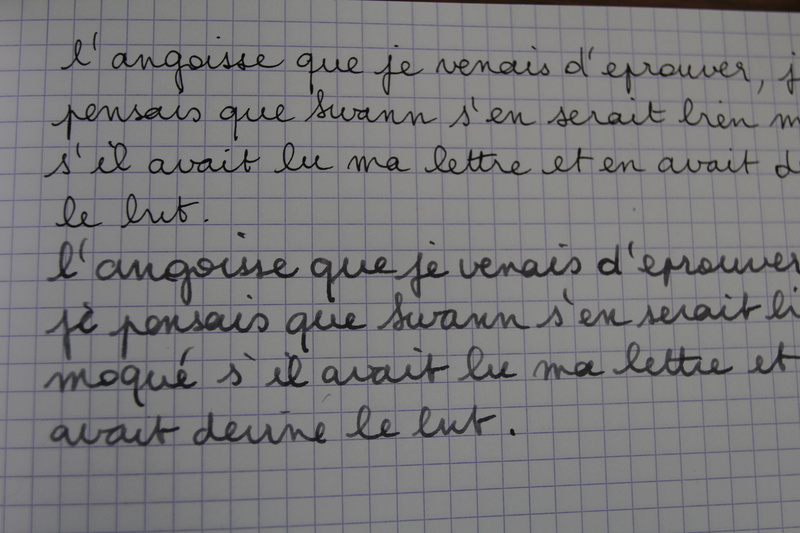 l'angoisse que je venais d'eprouver, j
pensais que Swann s'en serait bien m
s'il avait lu ma lettre et en avait d
le but.
l'angoisse que je venais d'eprouver
je pensais que Swann s'en serait bi
moqué s'il avait lu ma lettre et
avait deviné le but.